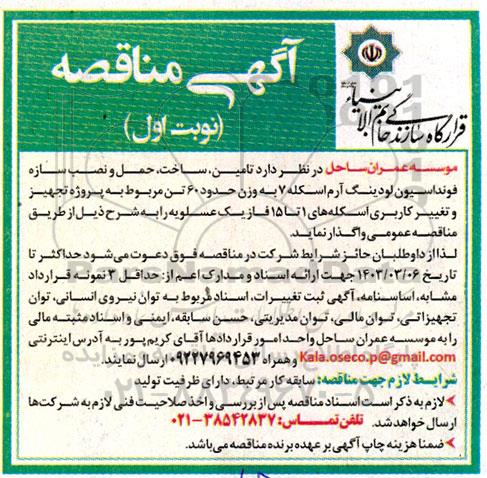 آگهی مناقصه
(نوبت اول)
قرارگاه سازندگی خاتم الانبیاء
موسسه عمران ساحل در نظر دارد تامین، ساخت، حمل و نصب سازه
فونداسیون لودینگ آرم اسکله ۷ به وزن حدود ۶۰ تن مربوط به پروژه تجهیز
و تغییر کاربری اسکله‌های ۱ تا ۱۵ فاز یک عسلویه را به شرح ذیل از طریق
مناقصه عمومی واگذار نماید.
لذا از داوطلبان حائز شرایط شرکت در مناقصه فوق دعوت می‌شود حداکثر تا
تاریخ ۱۴۰۳/۰۳/۰۶ جهت ارائه اسناد و مدارک اعم از: حداقل ۳ نمونه قرارداد
مشابه، اساسنامه، آگهی ثبت تغییرات، اسناد مربوط به توان نیروی انسانی، توان
تجهیزاتی، توان مالی، توان مدیریتی، حسن سابقه، ایمنی و اسناد مثبته مالی
را به موسسه عمران ساحل واحد امور قراردادها آقای کریم پور به آدرس اینترنتی
Kala.oseco.p@gmail.com و همراه ۰۹۲۲۷۹۶۹۴۵۳ ارسال نمایند.
شرایط لازم جهت مناقصه: سابقه کار مرتبط، دارای ظرفیت تولید
لازم به ذکر است اسناد مناقصه پس از بررسی و اخذ صلاحیت فنی لازم به شرکت‌ها
ارسال خواهد شد. تلفن تماس: ۳۸۵۴۲۸۳۷-۰۲۱
ضمنا هزینه چاپ آگهی بر عهده برنده مناقصه می‌باشد.